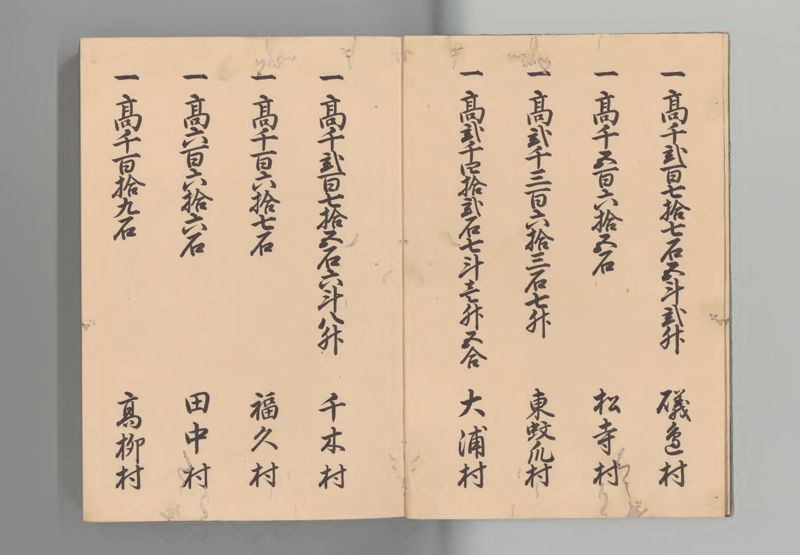 一高千弐百七拾七石五斗弐舛 磯邉村
一高千五百六拾五石 松寺村
一高弐千三百六拾三石七舛 東蚊爪村
一高弐千四拾弐石七斗壱舛五合 大浦村
一高千弐百七拾五石六斗八舛 千木村
一高千百六拾七石 福久村
一高六百六拾六石 田中村
一高千百拾九石 高柳村